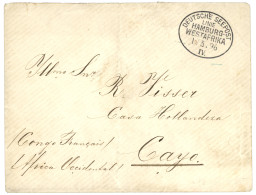 DEUTSCHE SEEPOST
LINIE
HAMBURG-
WESTAFRIKA
IV
Illmo Snr
R Visser
Casa Hollandeza
(Congo Français)
(Africa Occidental)
Cayo.